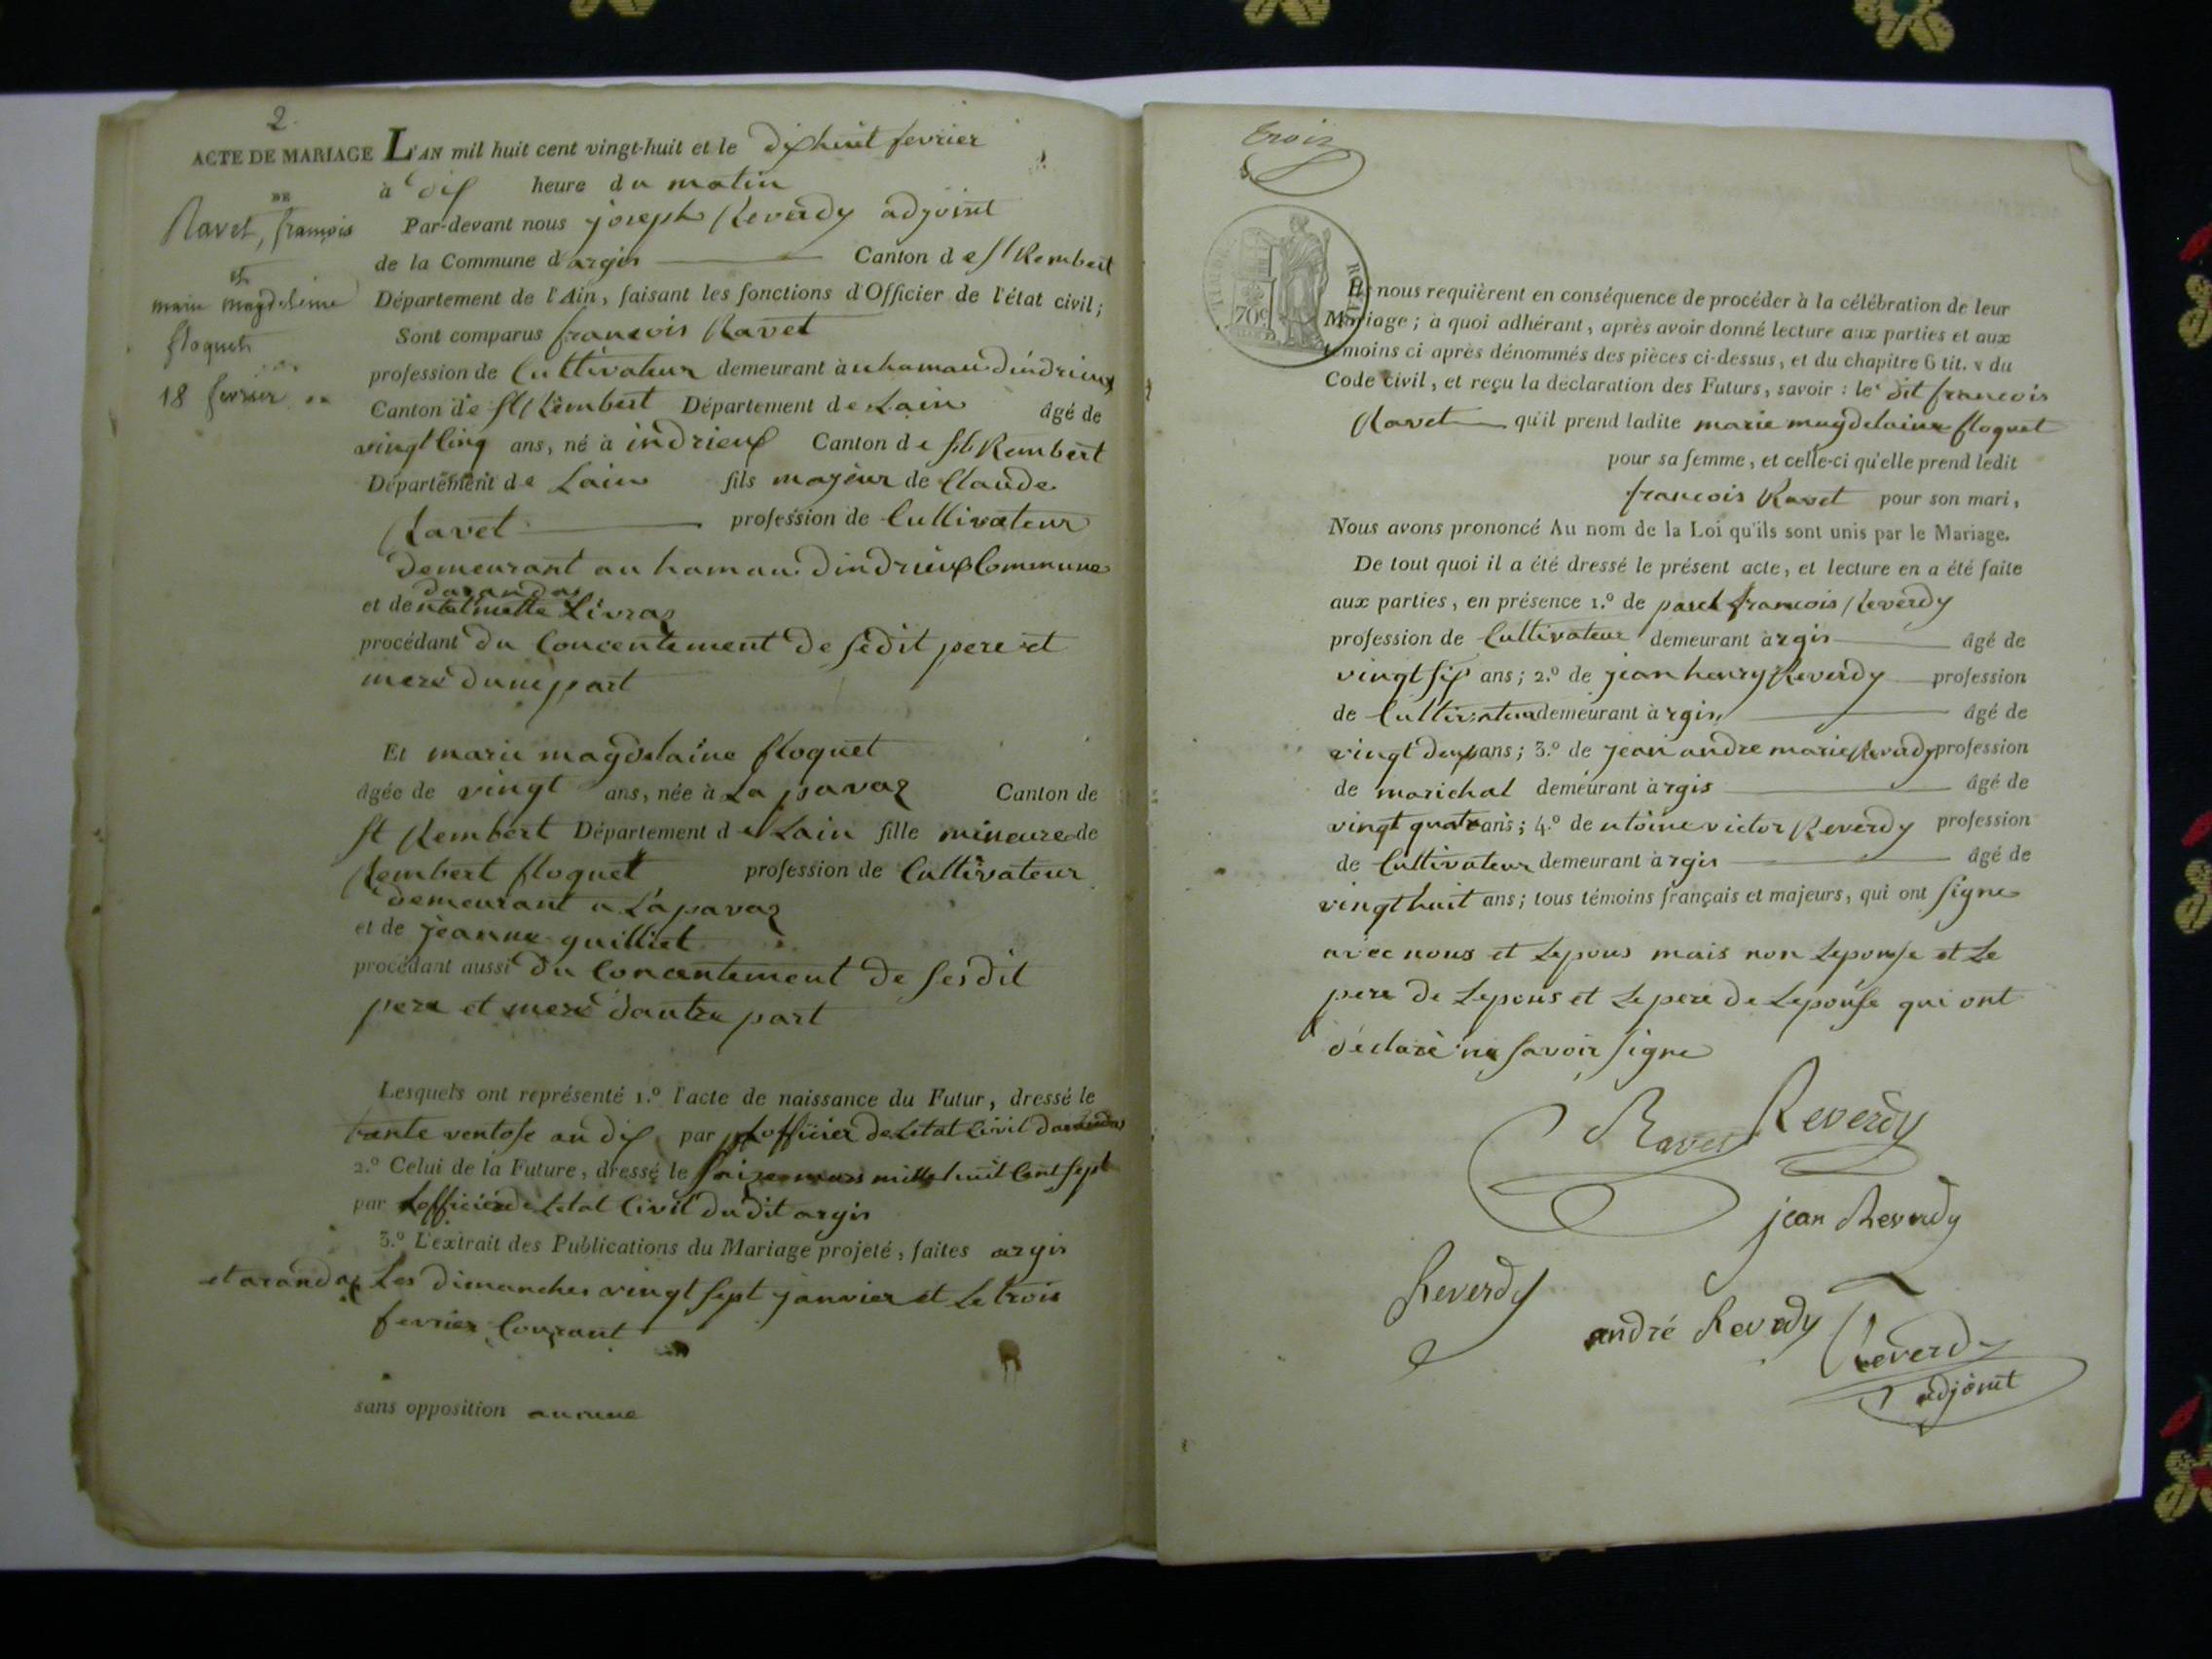 2.
ACTE DE MARIAGE
DE
Ravet, françois
et
marie magdeleine
floquet
18 fevrier
L'AN mil huit cent vingt-huit et le dixhuit fevrier
à dix heure du matin
Par-devant nous joseph Reverdy adjoint
de la Commune d argis Canton de St Rembert
Département de l'Ain, faisant les fonctions d'Officier de l'état civil;
Sont comparus francois Ravet
profession de Cultivateur demeurant à uhamau dindrieux
Canton de St Rembert Département de Lain âgé de
vingt Cinq ans, né à indrieux Canton de St Rembert
Département de Lain fils majeur de Claude
Ravet profession de Cultivateur
demeurant au hamau dindrieux Commune
darandas
et de Livraz
procédant du Concentement de sédit pere et
mere dune part
Et marie magdelaine floquet
âgée de vingt ans, née à La pavaz Canton de
St Rembert Département de Lain fille mineure de
Rembert floquet profession de Cultivateur
demeurant a Lapavaz
et de jeanne guilliet
procédant aussi du Concentement de sesdit
pere et mere dautre part
Lesquels ont représenté 1.º l'acte de naissance du Futur, dressé le
trente ventose an dix par Lofficier de Letat Civil darandas
2.º Celui de la Future, dressé le saize mars mille huit Cent sept
par Lofficier de Letat Civil du dit argis
3.º L'extrait des Publications du Mariage projeté, faites argis
et arandas Les dimanches vingt sept janvier et Le trois
fevrier Courant
sans opposition aucune
trois
TIMBRE ROYAL
70c
Et nous requièrent en conséquence de procéder à la célébration de leur
Mariage; à quoi adhérant, après avoir donné lecture aux parties et aux
témoins ci-après dénommés des pièces ci-dessus, et du chapitre 6 tit. v du
Code civil, et reçu la déclaration des Futurs, savoir: le dit francois
Ravet qu'il prend ladite marie magdelaine floquet
pour sa femme, et celle-ci qu'elle prend ledit
francois Ravet pour son mari,
Nous avons prononcé Au nom de la Loi qu'ils sont unis par le Mariage.
De tout quoi il a été dressé le présent acte, et lecture en a été faite
aux parties, en présence 1.º de francois Reverdy
profession de Cultivateur demeurant àrgis âgé de
vingt six ans; 2.º de jean henry Reverdy profession
de Cultivateur demeurant àrgis âgé de
vingt deux ans; 3.º de jean andre marie Reverdy profession
de marichal demeurant àrgis âgé de
vingt quatre ans; 4.º de ntoine victor Reverdy profession
de Cultivateur demeurant àrgis âgé de
vingt huit ans; tous témoins français et majeurs, qui ont signe
avec nous et Lepous mais non Lepouse et Le
pere de Lepous et Le pere de Lepouse qui ont
déclaré ne savoir signe
Ravet Reverdy
jean Reverdy
Reverdy
andré Reverdy Reverdy
adjoint